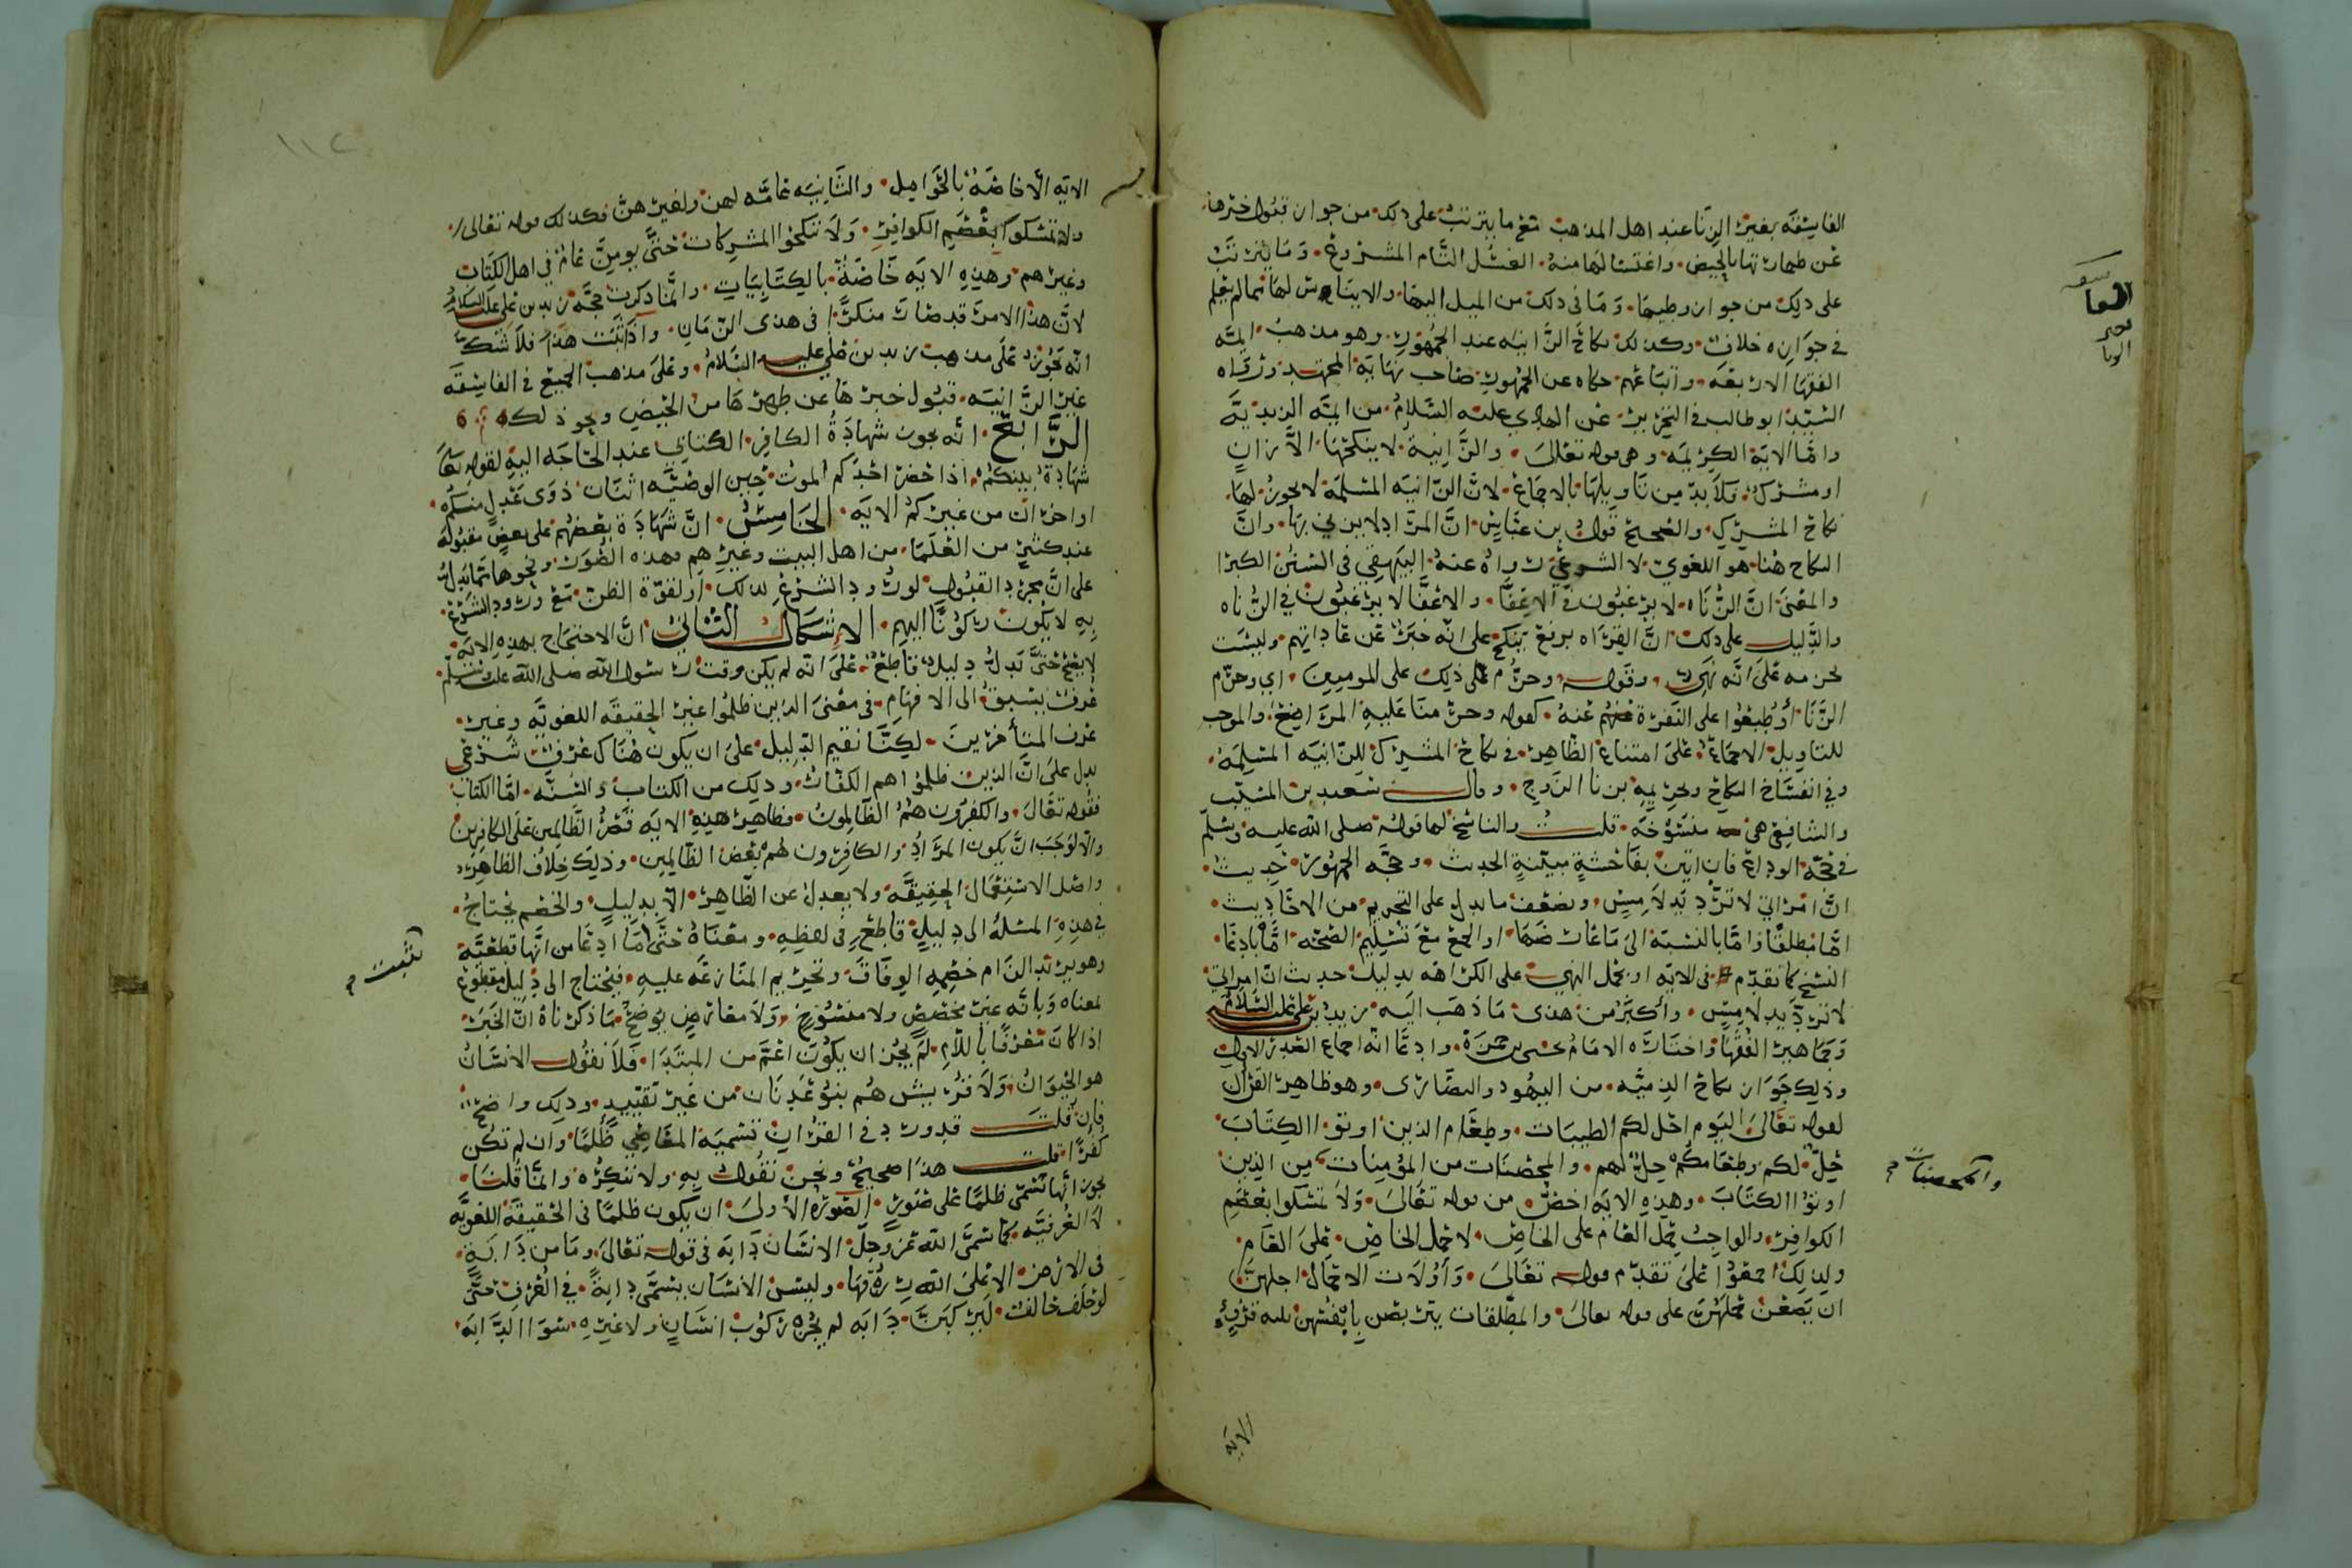 الفاسقه بغير الزنا عند اهل المذهب مع ما يترتب على ذلك من جواز قبول خبرها
عن طهارتها بالحيض واغتسالها منه الغسل التام المشروع وما يترتب
على ذلك من جواز وطيها وما فى ذلك من الميل اليها والايناس لها مما لم نعلم
في جوازه خلاف وكذلك نكاح الزانيه عند الجمهور وهو مذهب ايمة
الفقها الاربعه واتباعهم حكاه عن الجمهور صاحب نهاية المجتهد ورواه
السيد ابو طالب في التحرير عن الهادي عليه السلام من ايمة الزيدية
واما الاية الكريمه وهى قوله تعالى والزانية لا ينكحها الا زان
او مشرك فلا بد من تاويلها بالاجماع لان الزانيه المسلمة لا يجوز لها
نكاح المشرك والصحيح قول بن عباس ان المراد لا يزني بها وان
النكاح هنا هو اللغوي لا الشرعي رواه عنه البيهقي في السنن الكبرا
والمعنى ان الزناه لا يرغبون في الاعفا والاعفا لا يرغبون في الزناه
والدليل على ذلك ان القراه برفع ينكح على انه خبر عن عاداتهم وليست
بجزمه على انه نهي وقوله وحرم ذلك على المومنين اي وحرم
الزنا او طبعوا على النفرة عنه كقوله وحرمنا عليه المراضع والموجب
للتاويل الاجماع على امتناع الظاهر في نكاح المشرك للزانيه المسلمه
وفي انفساخ النكاح وتحريمه بزنا الزوج وقال سعيد بن المسيب
والشافعي هى منسوخه قلت والناسخ لها قوله صلى الله عليه وسلم
في حجة الوداع فان اتين بفاحشة مبينة الحديث وحجه الجمهور حديث
ان امراتي لا ترد يد لامس وبضعف ما يدل على التحريم من الاحاديث
اما مطلقا واما بالنسبة الى ما عارضها او الجمع مع تسليم الصحه اما بادعا
النسخ كما تقدم فى الايه او بحمل النهي على الكراهه بدليل حديث ان امراتي
لا ترد يد لامس واكثر من هذى ما ذهب اليه زيد بن علي عليه السلام
وجماهير الفقها واختاره الامام يحيى بن حمزة وادعا انه اجماع الصدر الاول
وذلك جواز نكاح الذميه من اليهود والنصارى وهو ظاهر القران
لقوله تعالى اليوم احل لكم الطيبات وطعام الذين اوتوا الكتاب
حل لكم وطعامكم حل لهم والمحصنات من المؤمنات من الذين
اوتوا الكتاب وهذه الايه اخص من قوله تعالى ولا تمسكوا بعصم
الكوافر والواجب حمل العام على الخاص لا حمل الخاص على العام
ولذلك اجمعوا على تقدم قوله تعالى واولات الاحمال اجلهن
ان يضعن حملهن على قوله تعالى والمطلقات يتربصن بانفسهن ثلثه قروء
والمحصنات
الايه
١١٢
الايه الاخاصه بالحوامل والثانيه عامه لهن ولغيرهن فكذلك قوله تعالى
ولا تمسكوا بعصم الكوافر ولا تنكحوا المشركات حتى يومن عام في اهل الكتاب
وغيرهم وهذه الايه خاصة بالكتابيات وانما ذكرت حجة زيد بن علي عليه السلام
لان هذا الامر قد صار منكرا فى هذى الزمان واذا ثبت هذا فلا شك
انه يجوز على مذهب زيد بن علي عليه السلام وعلى مذهب الجميع في الفاسقه
غير الزانيه قبول خبرها عن طهرها من الحيض ونحو ذلك
الرابع انه يجوز شهادة الكافر الكتابي عند الحاجه اليه لقوله تعا
شهادة بينكم اذا حضر احدكم الموت حين الوصيه اثنان ذوى عدل منكم
او اخران من غيركم الايه الخامس ان شهادة بعضهم على بعض مقبوله
عند كثير من العلما من اهل البيت وغيرهم فهذه الصور ونحوها مما يدل
على ان مجرد القبول لورود الشرع لذلك او لقوة الظن مع ورود الشرع
به لا يكون ركونا اليهم الاشكال الثاني ان الاحتجاج بهذه الايه
لا يصح حتى يدل دليل قاطع على انه لم يكن وقت رسول الله صلى الله عليه وسلم
عرف يسبق الى الافهام في معنى الذين ظلموا غير الحقيقه اللغويه وغير
عرف المتأخرين لكنا نقيم الدليل على ان يكون هناك عرف شرعي
يدل على ان الذين ظلموا هم الكفار وذلك من الكتاب والسنه اما الكتاب
فقوله تعالى والكفرون هم الظالمون فظاهر هذه الايه قصر الظالمين على الكافرين
والا لوجب ان يكون المراد والكافرون هم بعض الظالمين وذلك خلاف الظاهر
واصل الاستعمال الحقيقه ولا يعدل عن الظاهر الا بدليل والخصم يحتاج
في هذه المسئلة الى دليل قاطع في لفظه ومعناه حتى اما ادعا من انها قطعية
وهو يريد الزام خصمه الوفاق وتحريم المنازعه عليه فيحتاج الى دليل مقطوع
لمعناه وبانه غير مخصص ولا منسوخ ولا معارض يوضح ما ذكرناه ان الخبر
اذا كان معرفا باللام لم يجز ان يكون اعم من المبتدا فلا نقول الانسان
هو الحيوان ولا قريش هم بنو عدنان من غير تقييد وذلك واضح
فان قلت قد ورد في القران تسمية المعاصي ظلما وان لم تكن
كفرا قلت هذا صحيح ونحن نقول به ولا ننكره وانما قلنا
يجوز انها تسمى ظلما على صور الصورة الاولى ان يكون ظلما فى الحقيقة اللغويه
لا العرفيه كما سمى الله عز وجل الانسان دابه فى قوله تعالى وما من دابة
فى الارض الا على الله رزقها وليس الانسان يسمى دابة في العرف حتى
لو حلف حالف ليركبن دابه لم يجزه ركوب انسان ولا غيره سوا الدابه